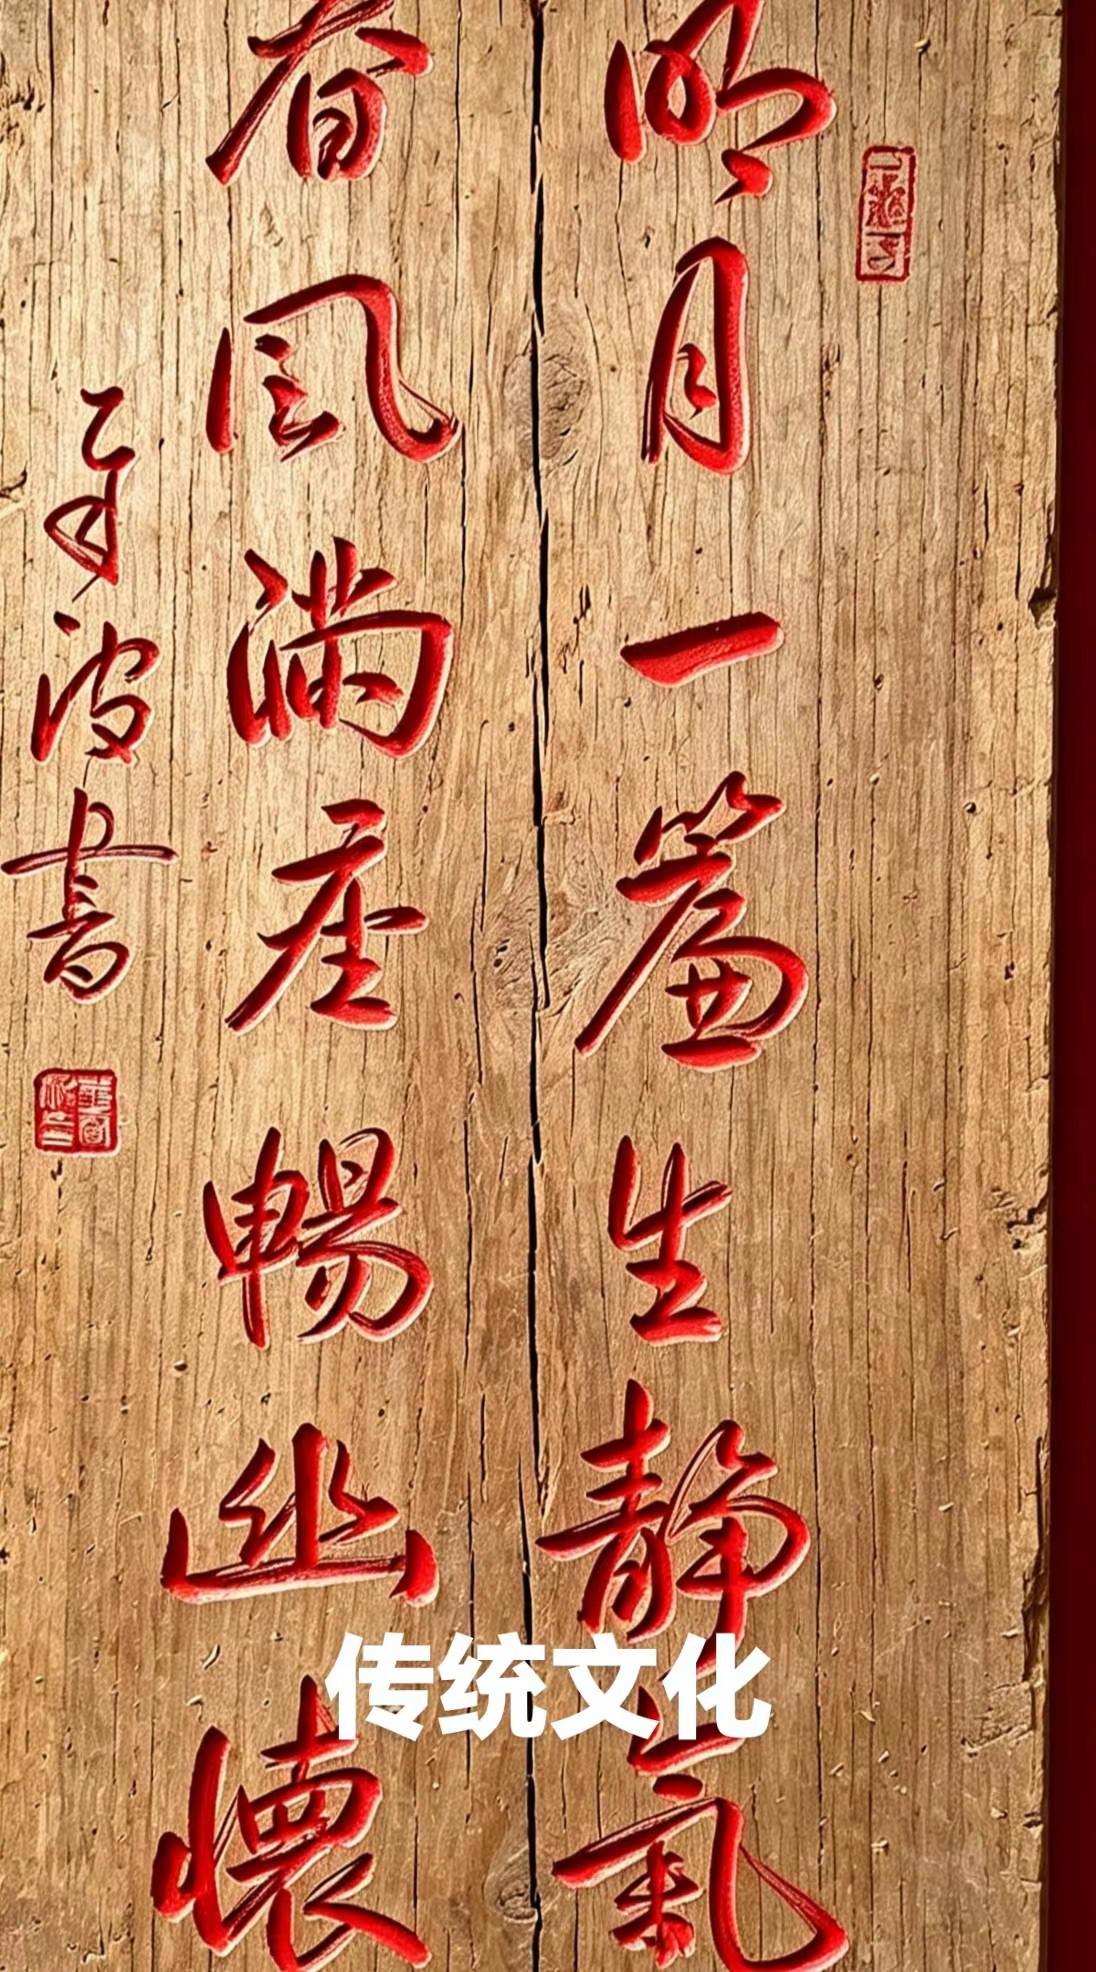 明月一簾生静氣
春風滿座暢幽懷
波書
传统文化